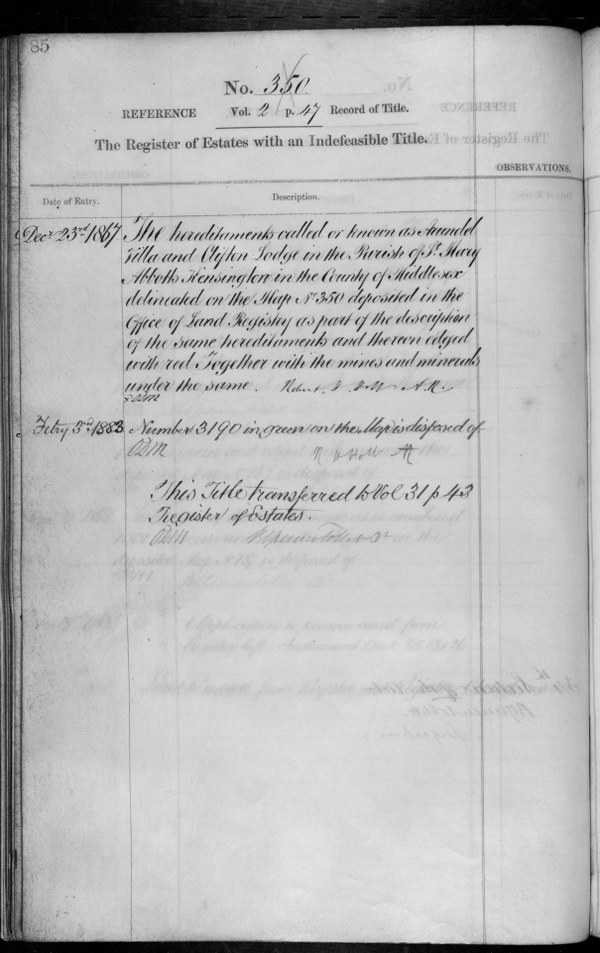 85
No. 350
REFERENCE Vol. 2 p. 47 Record of Title.
The Register of Estates with an Indefeasible Title.
OBSERVATIONS.
Date of Entry. Description.
Decr. 23rd 1867 The hereditaments called or known as Arundel
Villa and Clifton Lodge in the Parish of St. Mary
Abbotts Kensington in the County of Middlesex
delineated on the Map No 350 deposited in the
Office of Land Registry as part of the description
of the same hereditaments and thereon edged
with red Together with the mines and minerals
under the same. Robert A.R.
Febry 3rd 1883 Number 3190 in green on the Map is disposed of
This Title transferred to Vol 31 p 43
Register of Estates.